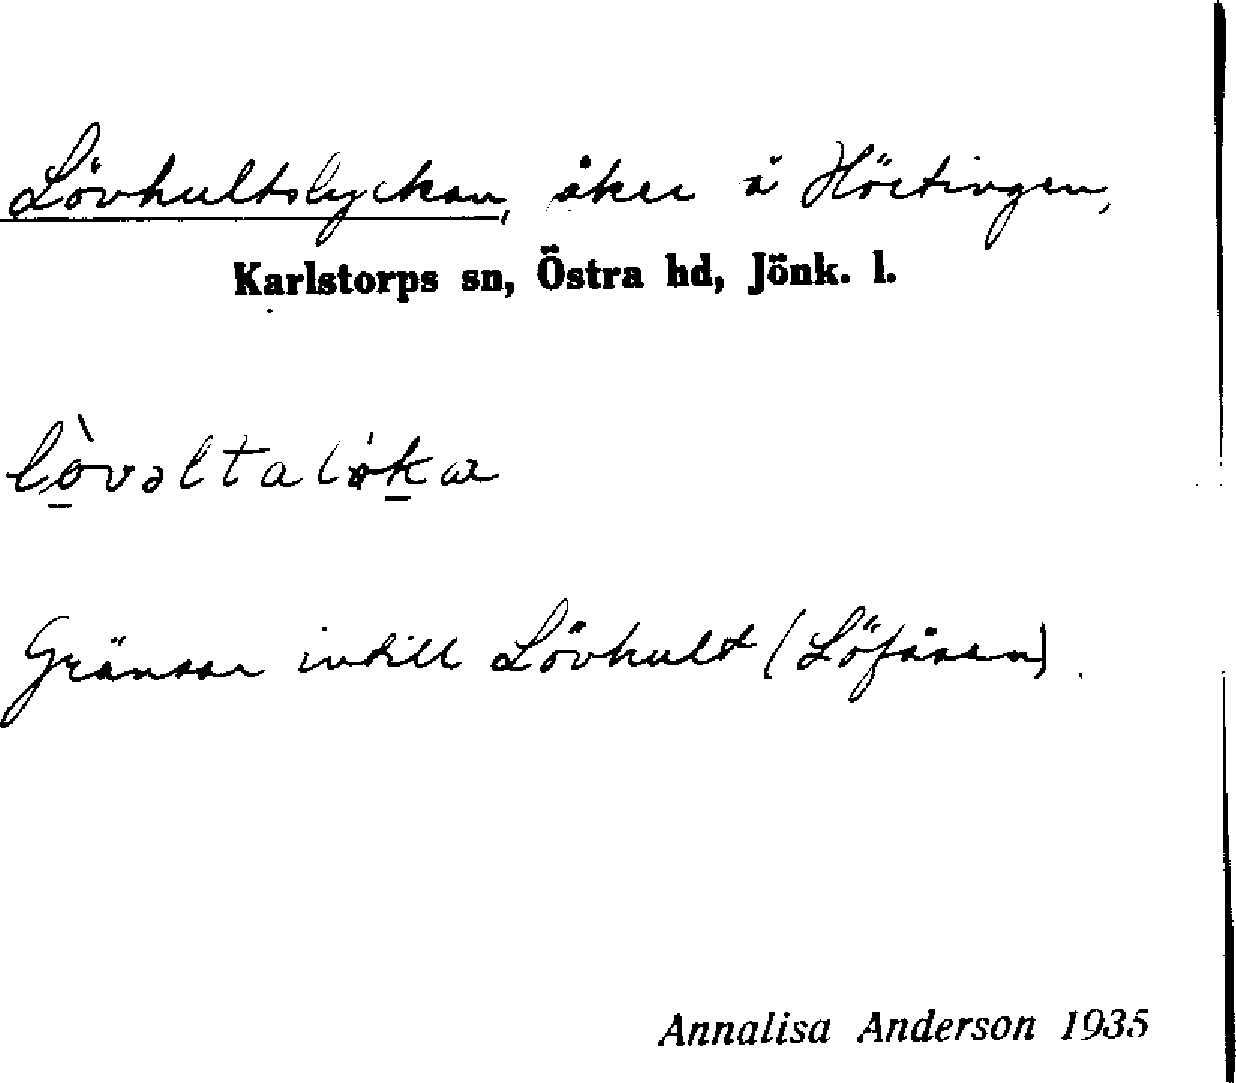 Lövhultslyckan, åker å Hörtingen,
Karlstorps sn, Östra hd, Jönk. l.
Gränsar intill Lövhult (Löfåsen).
Annalisa Anderson 1935